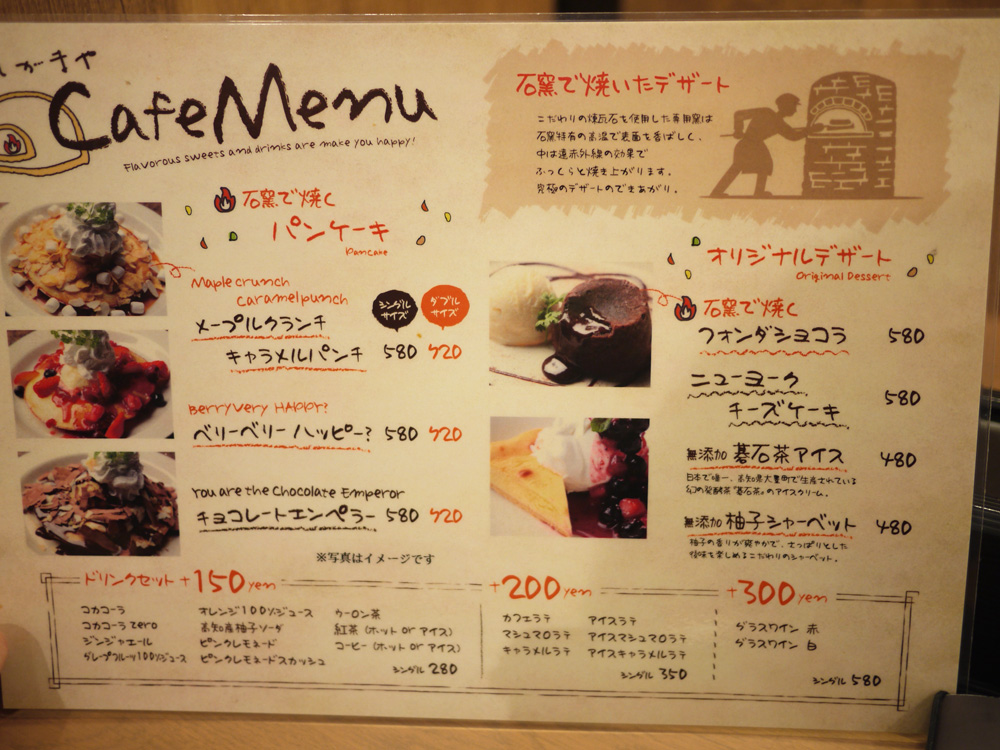 Cafe Menu
Flavorous sweets and drinks are make you happy!
石窯で焼く
パンケーキ
Pancake
Maple crunch
caramel punch
シングル
サイズ
ダブル
サイズ
メープルクランチ
キャラメルパンチ 580 720
Berry Very HAPPY?
ベリーベリーハッピー? 580 720
You are the Chocolate Emperor
チョコレートエンペラー 580 720
※写真はイメージです
石窯で焼いたデザート
こだわりの煉瓦石を使用した専用窯は
石窯特有の高温で表面を香ばしく、
中は遠赤外線の効果で
ふっくらと焼き上がります。
究極のデザートのできあがり。
オリジナルデザート
Original Dessert
石窯で焼く
フォンダショコラ 580
ニューヨーク
チーズケーキ 580
無添加 碁石茶アイス 480
日本で唯一、高知県大豊町で生産されている
幻の発酵茶"碁石茶"のアイスクリーム。
無添加 柚子シャーベット 480
柚子の香りが爽やかで、さっぱりとした
後味を楽しめるこだわりのシャーベット。
ドリンクセット +150 yen
コカコーラ
コカコーラ zero
ジンジャエール
グレープフルーツ100%ジュース
オレンジ100%ジュース
高知産柚子ソーダ
ピンクレモネード
ピンクレモネードスカッシュ
ウーロン茶
紅茶 (ホット or アイス)
コーヒー (ホット or アイス)
シングル 280
+200 yen
カフェラテ
マシュマロラテ
キャラメルラテ
アイスラテ
アイスマシュマロラテ
アイスキャラメルラテ
シングル 350
+300 yen
グラスワイン 赤
グラスワイン 白
シングル 580